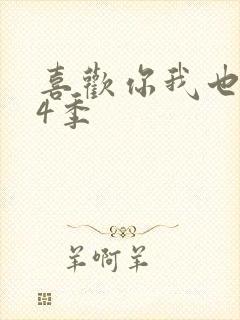 喜歡你我也
4季
羊啊羊